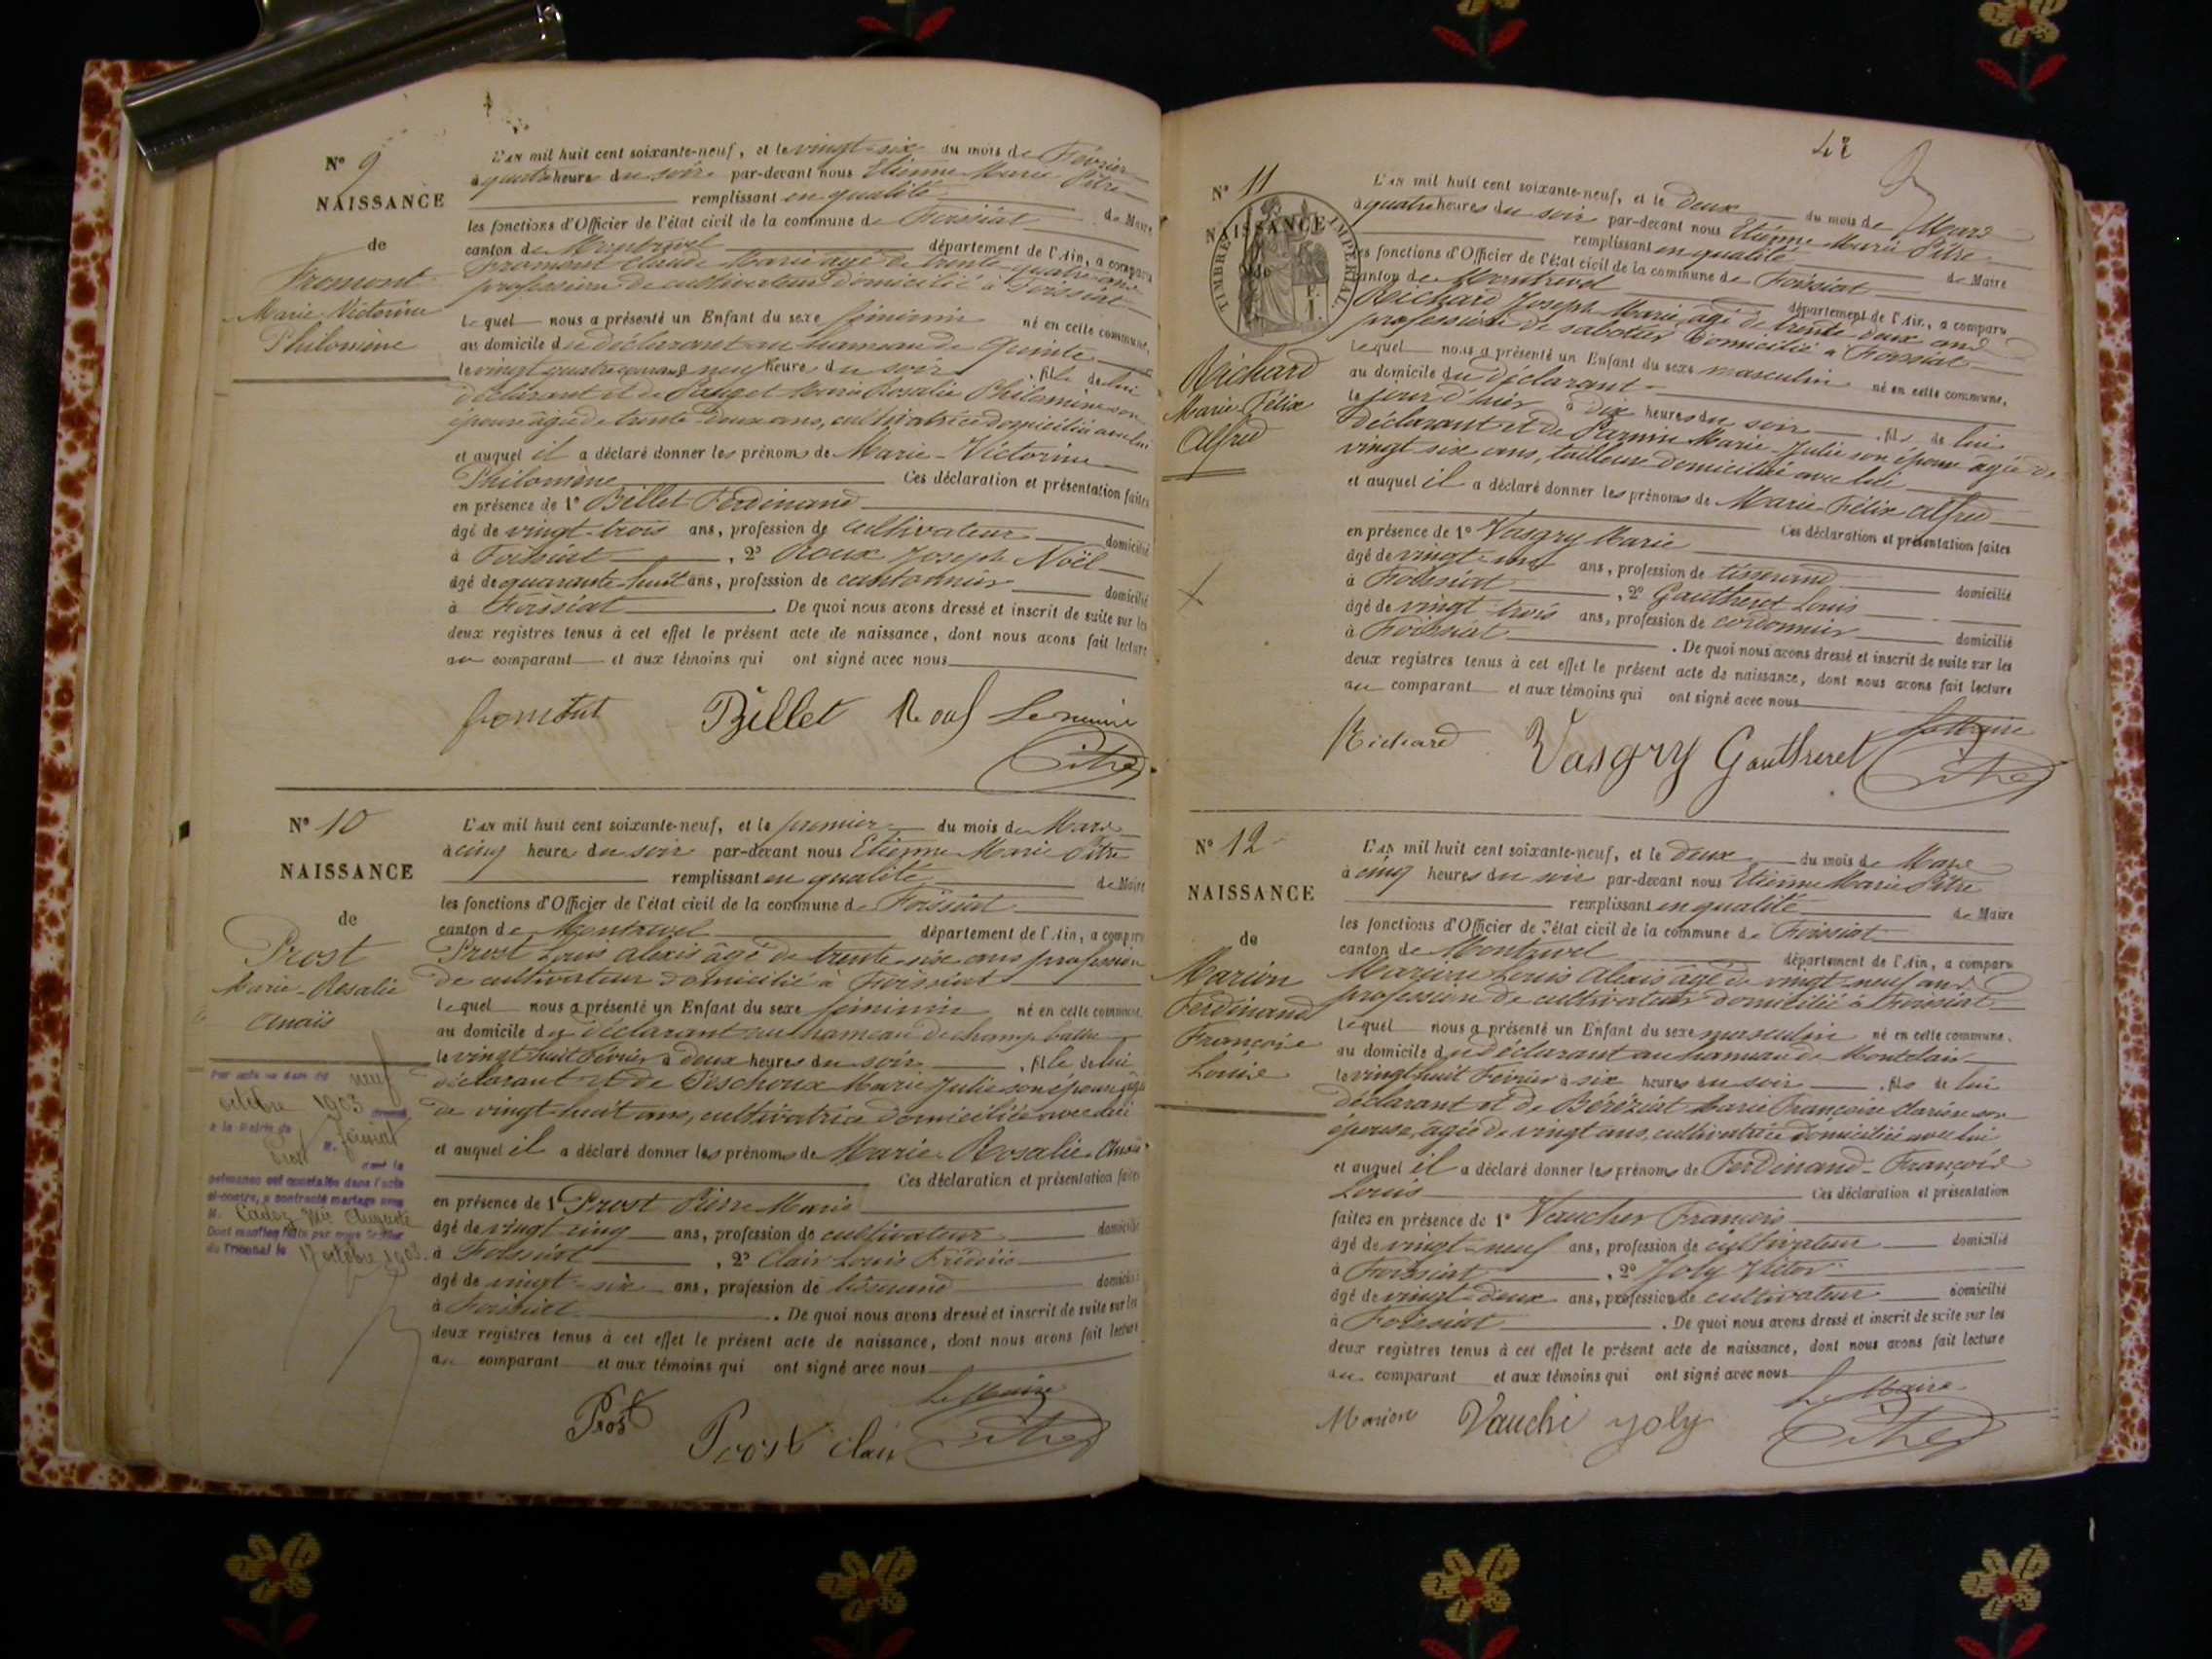 N° 9
NAISSANCE
de
Fromont
Marie Victorine
Philomène
L'AN mil huit cent soixante-neuf, et le vingt-six du mois de Février
à quatre heures du soir par-devant nous Etienne Marie Pitre
remplissant en qualité de Maire
les fonctions d'Officier de l'état civil de la commune de Foissiat
canton de Montrevel département de l'Ain, a comparu
Fromont Claude Marie âgé de trente-quatre ans
profession de cultivateur domicilié à Foissiat
lequel nous a présenté un Enfant du sexe féminin né en cette commune,
au domicile du déclarant au hameau de
le vingt quatre courant neuf heure du soir , fille de lui
déclarant et de Marie Rosalie Philomène son
épouse âgée de trente-deux ans, cultivatrice domiciliée avec lui
et auquel il a déclaré donner les prénoms de Marie-Victorine
Philomène Ces déclaration et présentation faites
en présence de 1° Billet Ferdinand
âgé de vingt-trois ans, profession de cultivateur domicilié
à Foissiat , 2° Roux Joseph Noël
âgé de quarante-huit ans, profession de cantonnier domicilié
à Foissiat . De quoi nous avons dressé et inscrit de suite sur les
deux registres tenus à cet effet le présent acte de naissance, dont nous avons fait lecture
au comparant et aux témoins qui ont signé avec nous
Billet Le maire
Pitre
N° 10
NAISSANCE
de
Prost
Marie-Rosalie
Anaïs
neuf
octobre 1903
à la Mairie de
Foissiat
Prost
dont la
naissance est constatée dans l'acte
ci-contre, a contracté mariage avec
M. Cadoz Mie Auguste
Dont mention faite par nous Greffier
du Tribunal le 17 octobre 1903.
L'AN mil huit cent soixante-neuf, et le premier du mois de Mars
à cinq heure du soir par-devant nous Etienne Marie Pitre
remplissant en qualité de Maire
les fonctions d'Officier de l'état civil de la commune de Foissiat
canton de Montrevel département de l'Ain, a comparu
Prost Louis Alexis âgé de trente-six ans profession
de cultivateur domicilié à Foissiat
lequel nous a présenté un Enfant du sexe féminin né en cette commune,
au domicile du déclarant au hameau de
le vingt huit Février à deux heures du soir , fille de lui
déclarant et de Peschoux Marie Julie son épouse âgée
de vingt-huit ans, cultivatrice domiciliée avec lui
et auquel il a déclaré donner les prénoms de Marie-Rosalie-Anaïs
Ces déclaration et présentation faites
en présence de 1° Prost Pierre Marie
âgé de vingt-cinq ans, profession de cultivateur domicilié
à Foissiat , 2° Clair Louis Frédéric
âgé de vingt-six ans, profession de tisserand domicilié
à Foissiat . De quoi nous avons dressé et inscrit de suite sur les
deux registres tenus à cet effet le présent acte de naissance, dont nous avons fait lecture
au comparant et aux témoins qui ont signé avec nous
Le Maire
Prost Prost Clair Pitre
N° 11
NAISSANCE
TIMBRE IMPÉRIAL
Richard
Marie Félix
Alfred
L'AN mil huit cent soixante-neuf, et le Deux du mois de Mars
à quatre heures du soir par-devant nous Etienne Marie Pitre
remplissant en qualité de Maire
les fonctions d'Officier de l'état civil de la commune de Foissiat
canton de Montrevel département de l'Ain, a comparu
Richard Joseph Marie âgé de trente-deux ans
profession de sabotier domicilié à Foissiat
lequel nous a présenté un Enfant du sexe masculin né en cette commune,
au domicile du déclarant
le jour d'hier à Dix heures du soir , fils de lui
déclarant et de Marie Julie son épouse âgée de
vingt six ans, tailleuse domiciliée avec lui
et auquel il a déclaré donner les prénoms de Marie Félix Alfred
Ces déclaration et présentation faites
en présence de 1° Vasgry Marie
âgé de ans, profession de tisserand domicilié
à Foissiat , 2° Gautheret Louis
âgé de vingt-trois ans, profession de cordonnier domicilié
à Foissiat . De quoi nous avons dressé et inscrit de suite sur les
deux registres tenus à cet effet le présent acte de naissance, dont nous avons fait lecture
au comparant et aux témoins qui ont signé avec nous
Le Maire
Richard Vasgry Gautheret Pitre
N° 12
NAISSANCE
de
Marion
Ferdinand
François
Louis
L'AN mil huit cent soixante-neuf, et le Deux du mois de Mars
à cinq heures du soir par-devant nous Etienne Marie Pitre
remplissant en qualité de Maire
les fonctions d'Officier de l'état civil de la commune de Foissiat
canton de Montrevel département de l'Ain, a comparu
Marion Louis Alexis âgé de vingt-neuf ans
profession de cultivateur domicilié à Foissiat
lequel nous a présenté un Enfant du sexe masculin né en cette commune,
au domicile du déclarant au hameau de Montclair
le vingt huit Février à six heures du soir , fils de lui
déclarant et de Béréziat Marie Françoise son
épouse, âgée de vingt ans, cultivatrice domiciliée avec lui
et auquel il a déclaré donner les prénoms de Ferdinand-François
Louis Ces déclaration et présentation
faites en présence de 1° Vaucher François
âgé de vingt-neuf ans, profession de cultivateur domicilié
à Foissiat , 2° Joly Victor
âgé de vingt-deux ans, profession de cultivateur domicilié
à Foissiat . De quoi nous avons dressé et inscrit de suite sur les
deux registres tenus à cet effet le présent acte de naissance, dont nous avons fait lecture
au comparant et aux témoins qui ont signé avec nous
Le Maire
Marion Vauché Joly Pitre